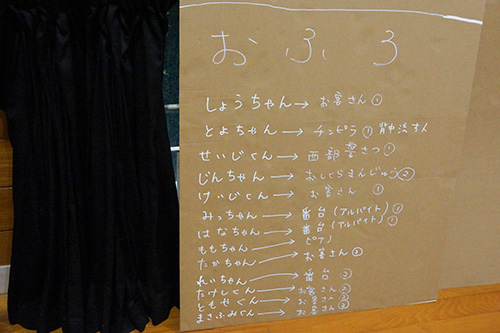 おふろ
しょうちゃん→お客さん①
とよちゃん→チンピラ①背中流す人
せいじくん→西部警さつ①
じんちゃん→おしくらまんじゅう②
けいじくん→お客さん①
みっちゃん→番台(アルバイト)①
はなちゃん→番台(アルバイト)①
ももちゃん→ピアノ
たかちゃん→お客さん②
れいちゃん→番台②
たけしくん→お客さん②
ともやくん→お客さん②
まさふみくん→お客さん②